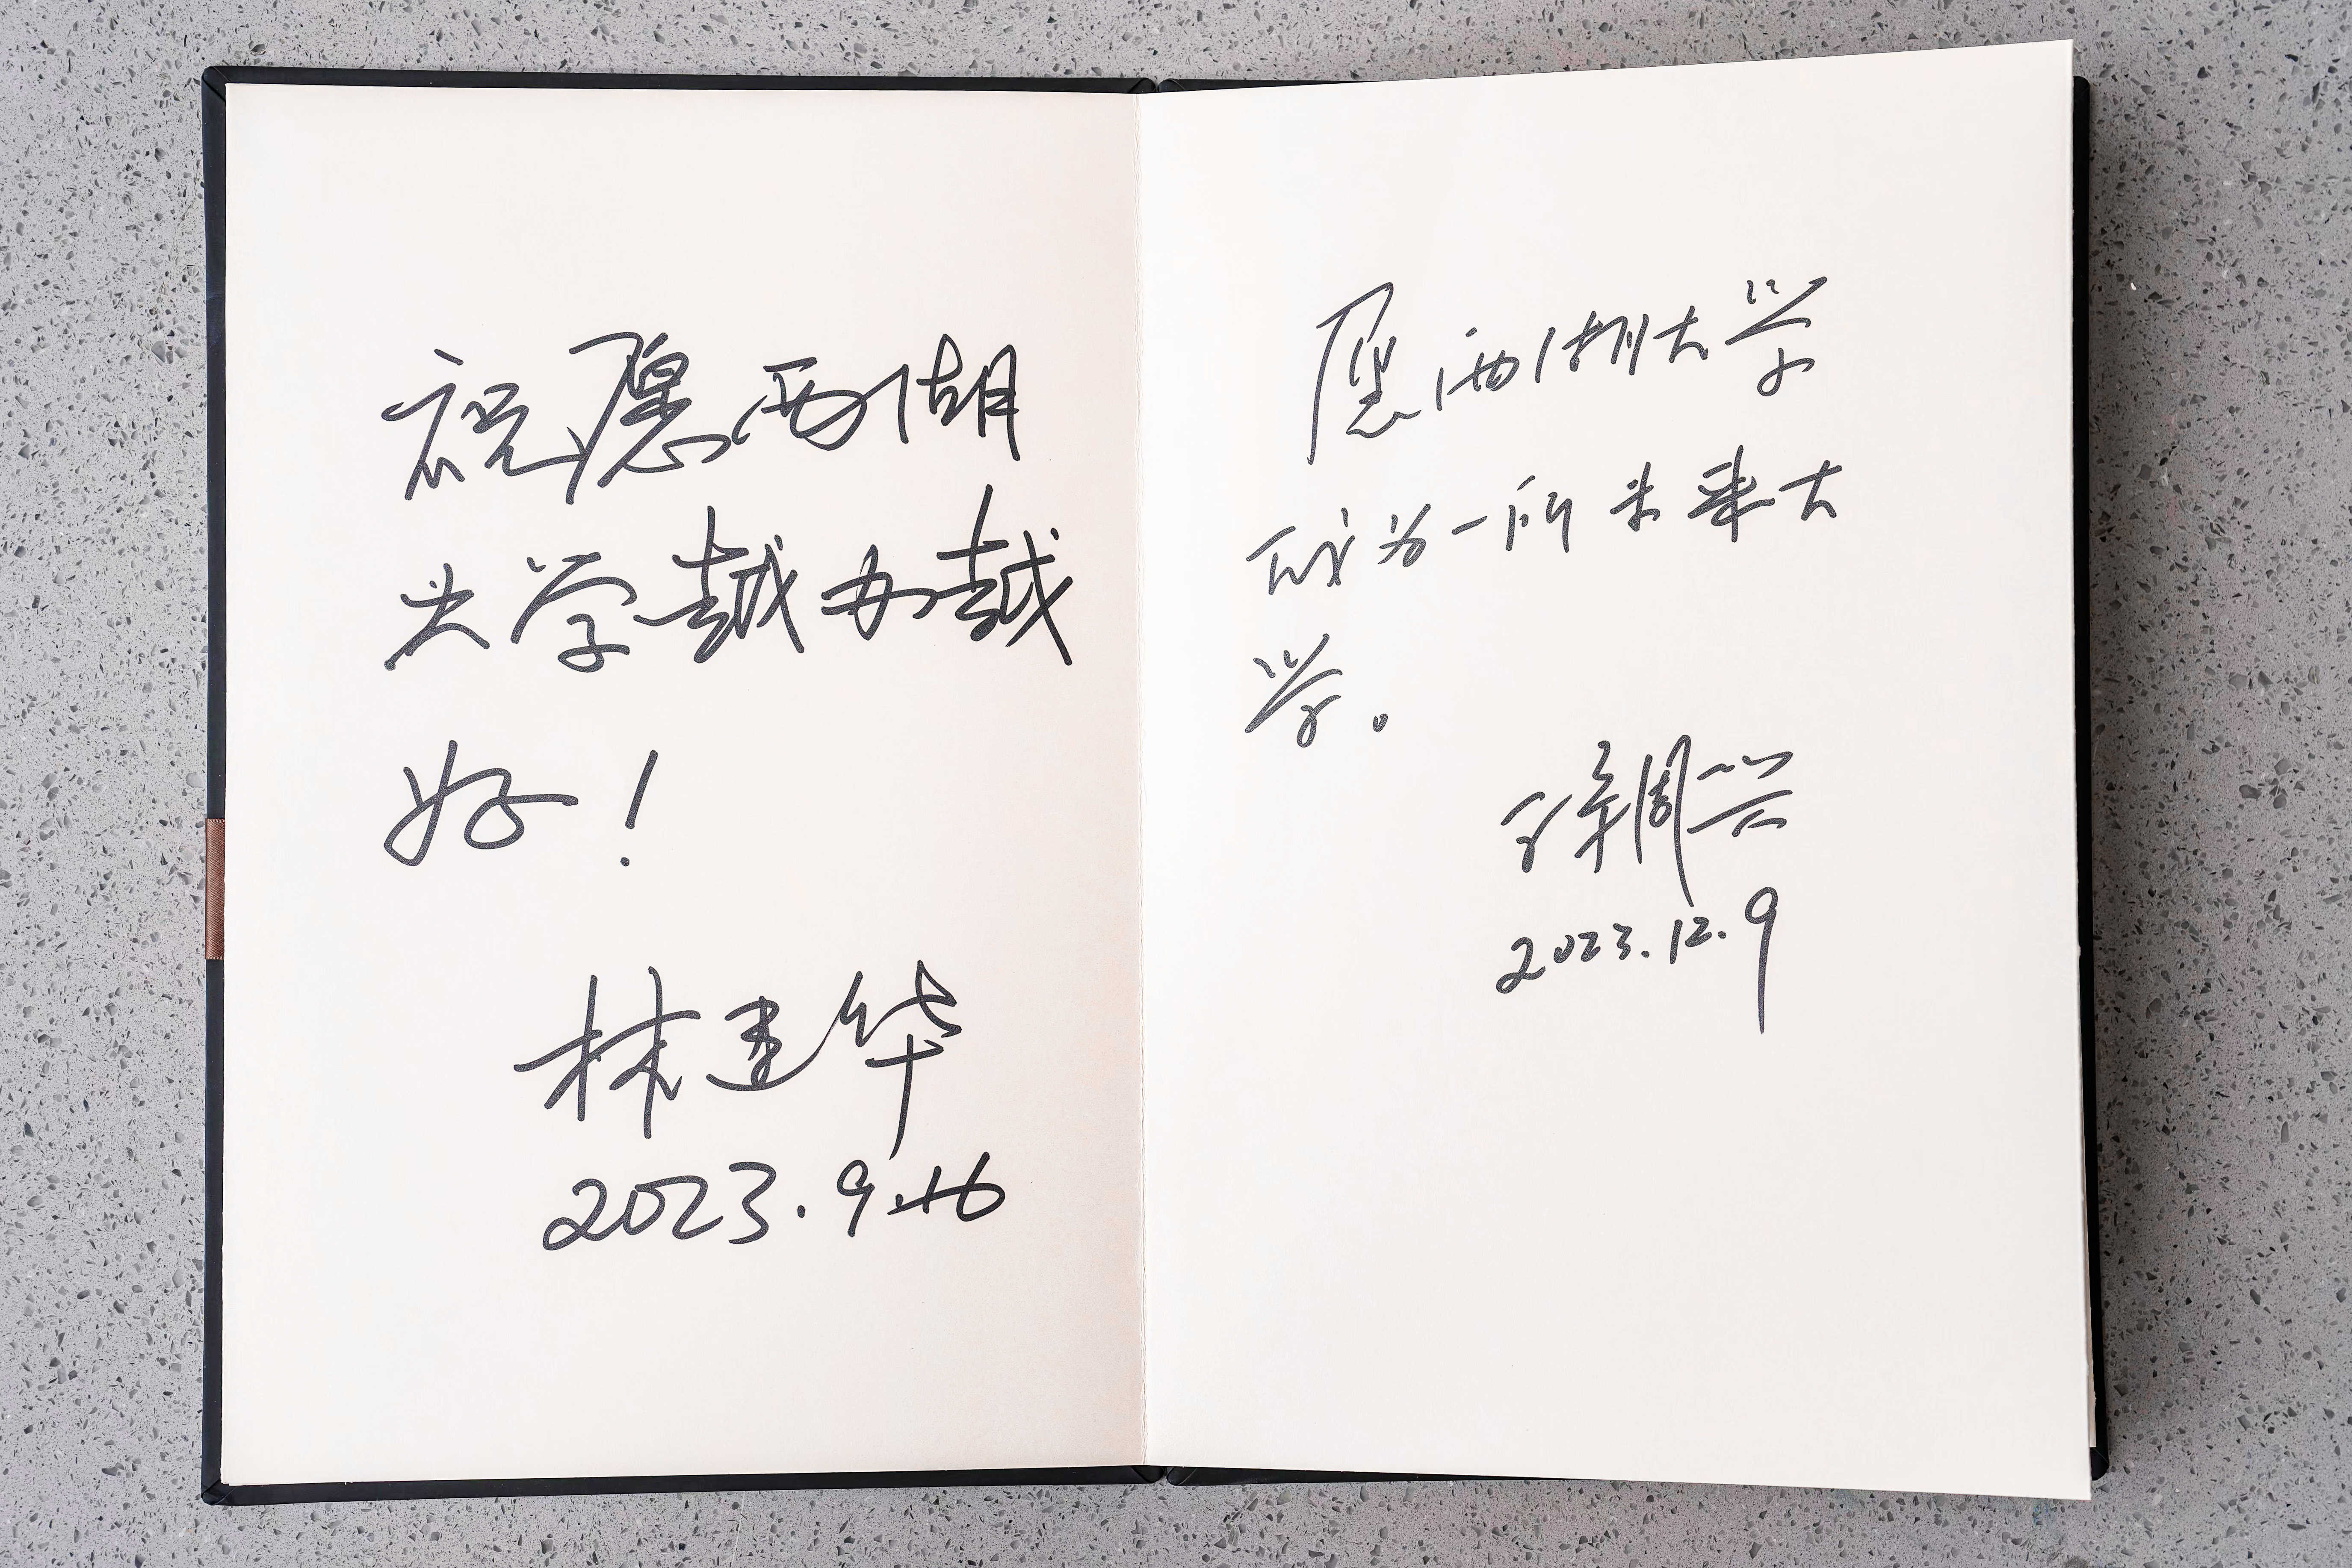 祝愿西湖
大学越办越
好！
林建华
2023.9.16
愿西湖大学
成为一所未来大
学。
孙周兴
2023.12.9